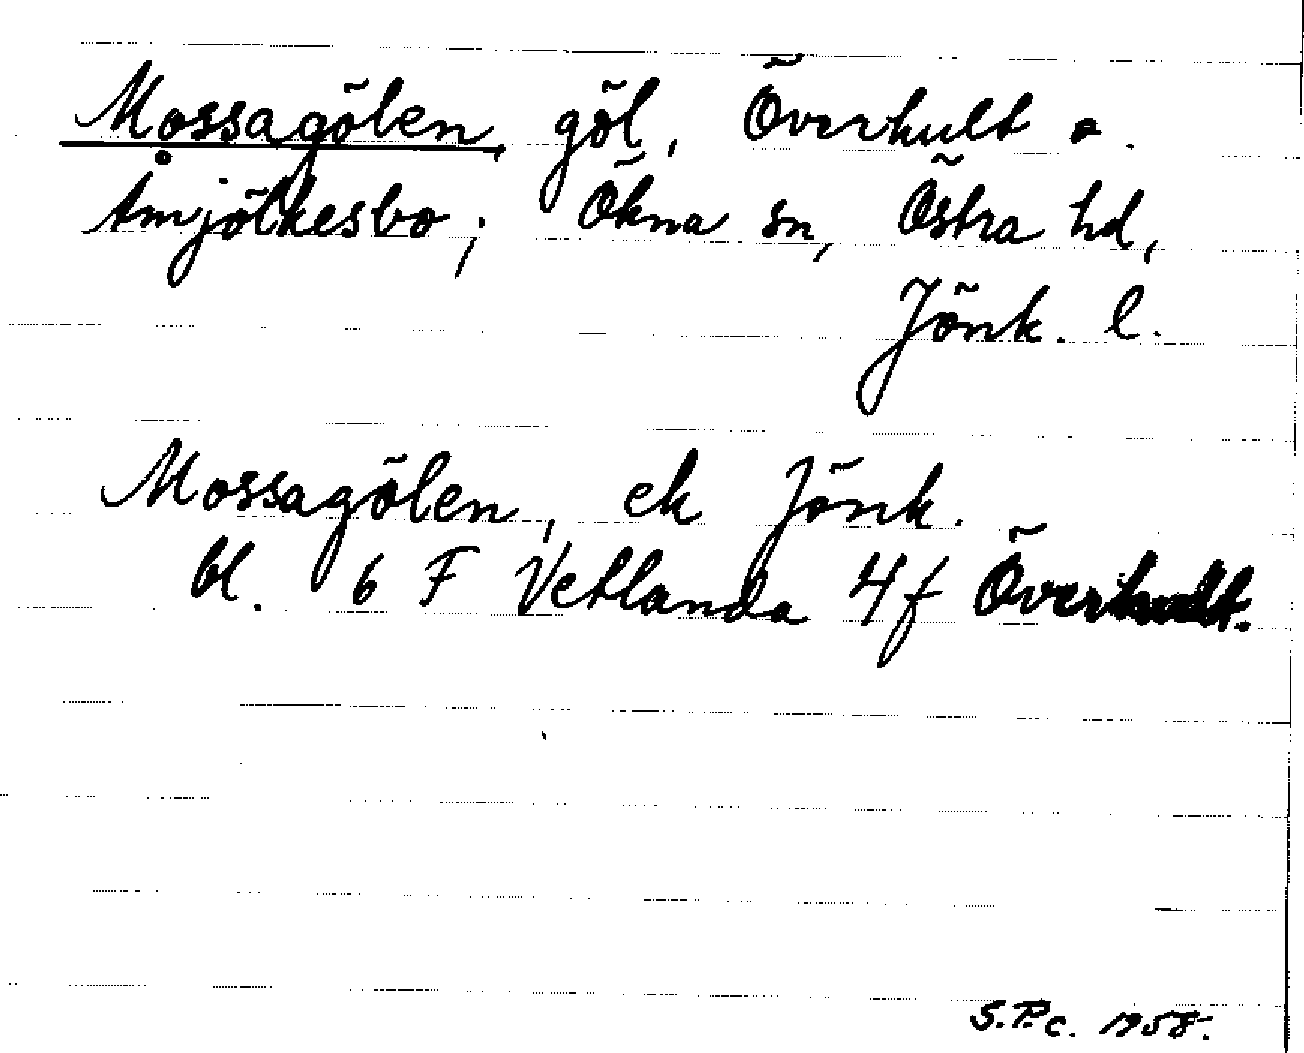 Mossagölen, göl, Överhult o.
Åmjölkesbo; Ökna sn, Östra hd,
Jönk. l.
Mossagölen, ek Jönk.
bl. 6 F Vetlanda 4f Överhult.
S.P.c. 1958.